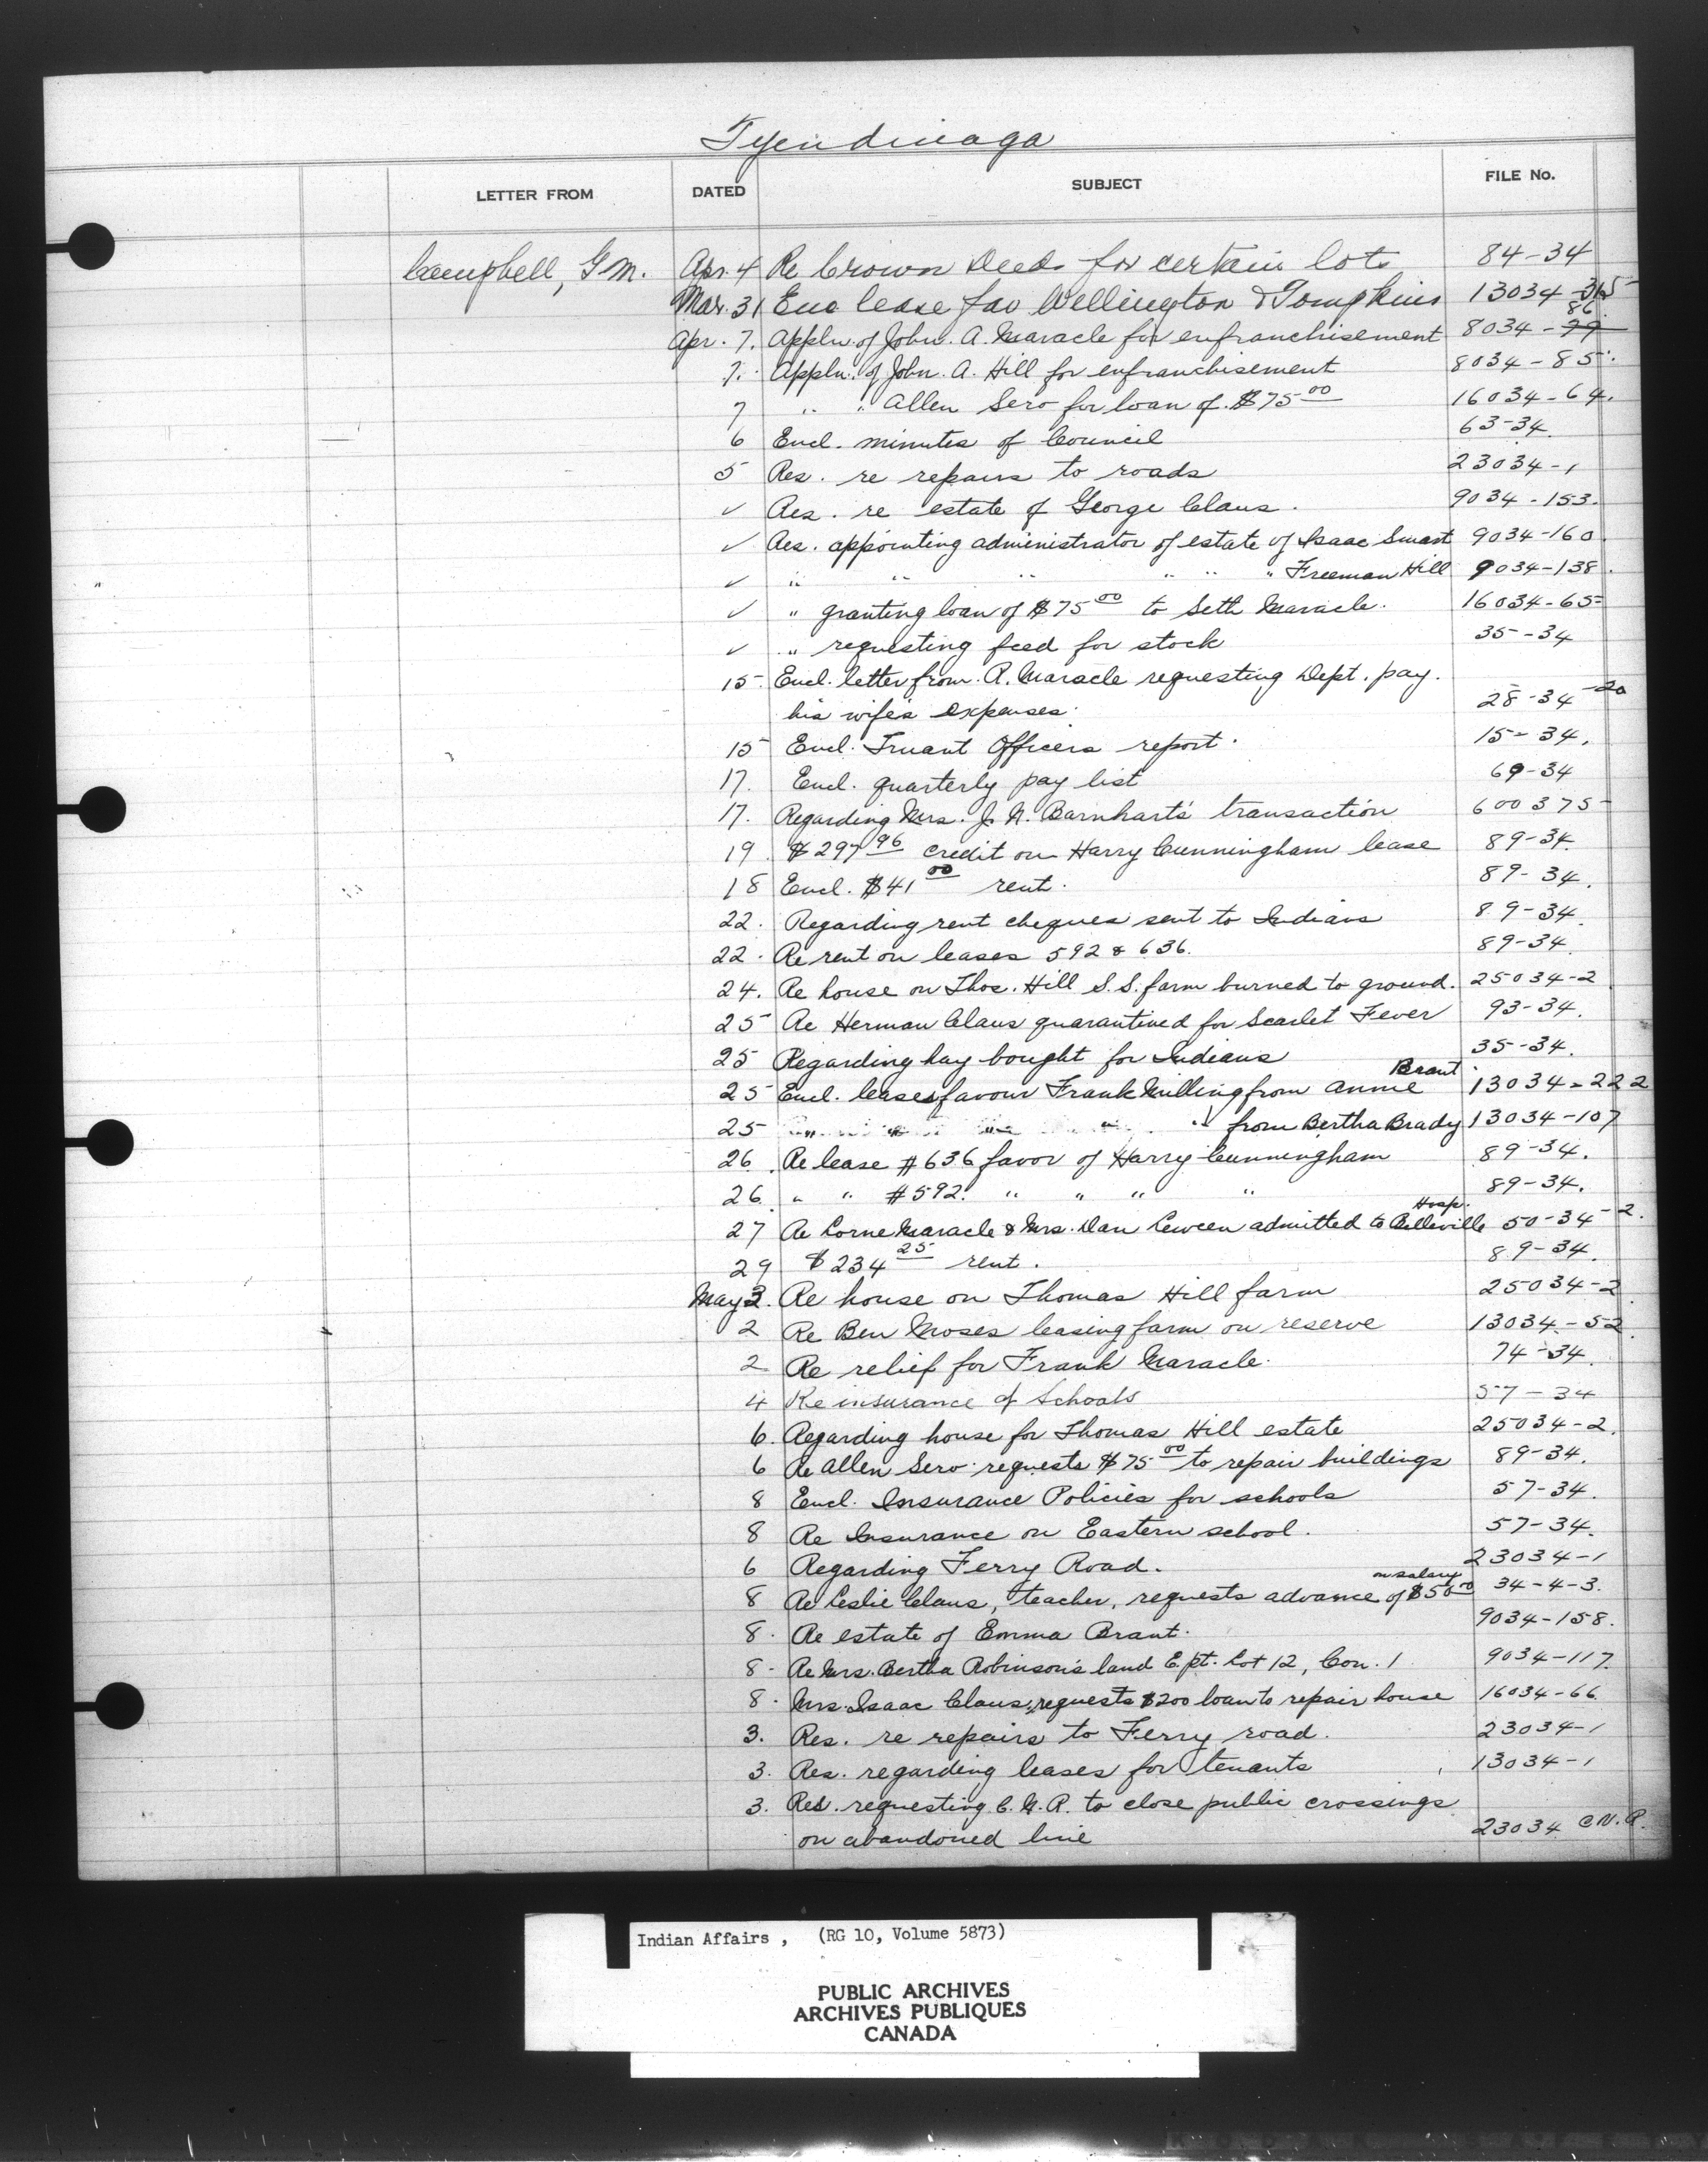 Tyendinaga
LETTER FROM DATED SUBJECT FILE No.
Campbell, G.M. Apr. 4 Re Crown Deeds for certain lots 84-34
Mar. 31 Enc lease fav Wellington & Tompkins 13034-315
Apr. 7. Appln of John. A. Maracle for enfranchisement 8034-79 86
7. Appln. of John. A. Hill for enfranchisement 8034-85.
7 " " Allen Sero for loan of $75 00 16034-64.
6 Encl. minutes of Council 63-34.
5 Res. re repairs to roads 23034-1
✓ Res. re estate of George Claus. 9034-153.
✓ Res. appointing administrator of estate of Isaac Smart 9034-160.
" ✓ " " " " " " Freeman Hill 9034-138.
✓ " granting loan of $75 00 to Seth Maracle. 16034-65
✓ " requesting feed for stock 35-34
15 Encl. letter from R. Maracle requesting Dept. pay.
his wife's expenses. 28-34-20
15 Encl. Truant Officers report. 15-34.
17. Encl. quarterly pay list 69-34
17. Regarding Mrs. J. N. Barnhart's transaction 600375
19. $297 96 credit on Harry Cunningham lease 89-34.
18 Encl. $41 00 rent. 89-34.
22. Regarding rent cheques sent to Indians 89-34.
22. Re rent on leases 592 & 636. 89-34.
24. Re house on Thos. Hill S.S. farm burned to ground. 25034-2
25 Re Herman Claus quarantined for Scarlet Fever 93-34.
25 Regarding hay bought for Indians 35-34.
25 Encl. leases favour Frank Milling from Annie Brant 13034-222
25 " " " " " from Bertha Brady 13034-107
26. Re lease #636 favor of Harry Cunningham 89-34.
26 " " #592. " " " " 89-34.
27 Re Lorne Maracle & Mrs. Dan Lewen admitted to Belleville Hosp. 50-34-2.
29 $234 25 rent. 89-34.
May 2. Re house on Thomas Hill farm 25034-2
2 Re Ben Moses leasing farm on reserve 13034-52
2 Re relief for Frank Maracle. 74-34.
4 Re insurance of Schools 57-34
6. Regarding house for Thomas Hill estate 25034-2.
6 Re Allen Sero requests $75 00 to repair buildings 89-34.
8 Encl. Insurance Policies for schools 57-34.
8 Re Insurance on Eastern school. 57-34.
6 Regarding Ferry Road. 23034-1
8 Re Leslie Claus, teacher, requests advance on salary of $50 00 34-4-3.
8. Re estate of Emma Brant. 9034-158.
8. Re Mrs. Bertha Robinson's land E. pt. Lot 12, Con. 1 9034-117.
8. Mrs. Isaac Claus, requests $200 loan to repair house 16034-66
3. Res. re repairs to Ferry road. 23034-1
3. Res. regarding leases for tenants 13034-1
3. Res. requesting C.N.R. to close public crossings
on abandoned line 23034 C.N.R.
Indian Affairs, (RG 10, Volume 5873)
PUBLIC ARCHIVES
ARCHIVES PUBLIQUES
CANADA